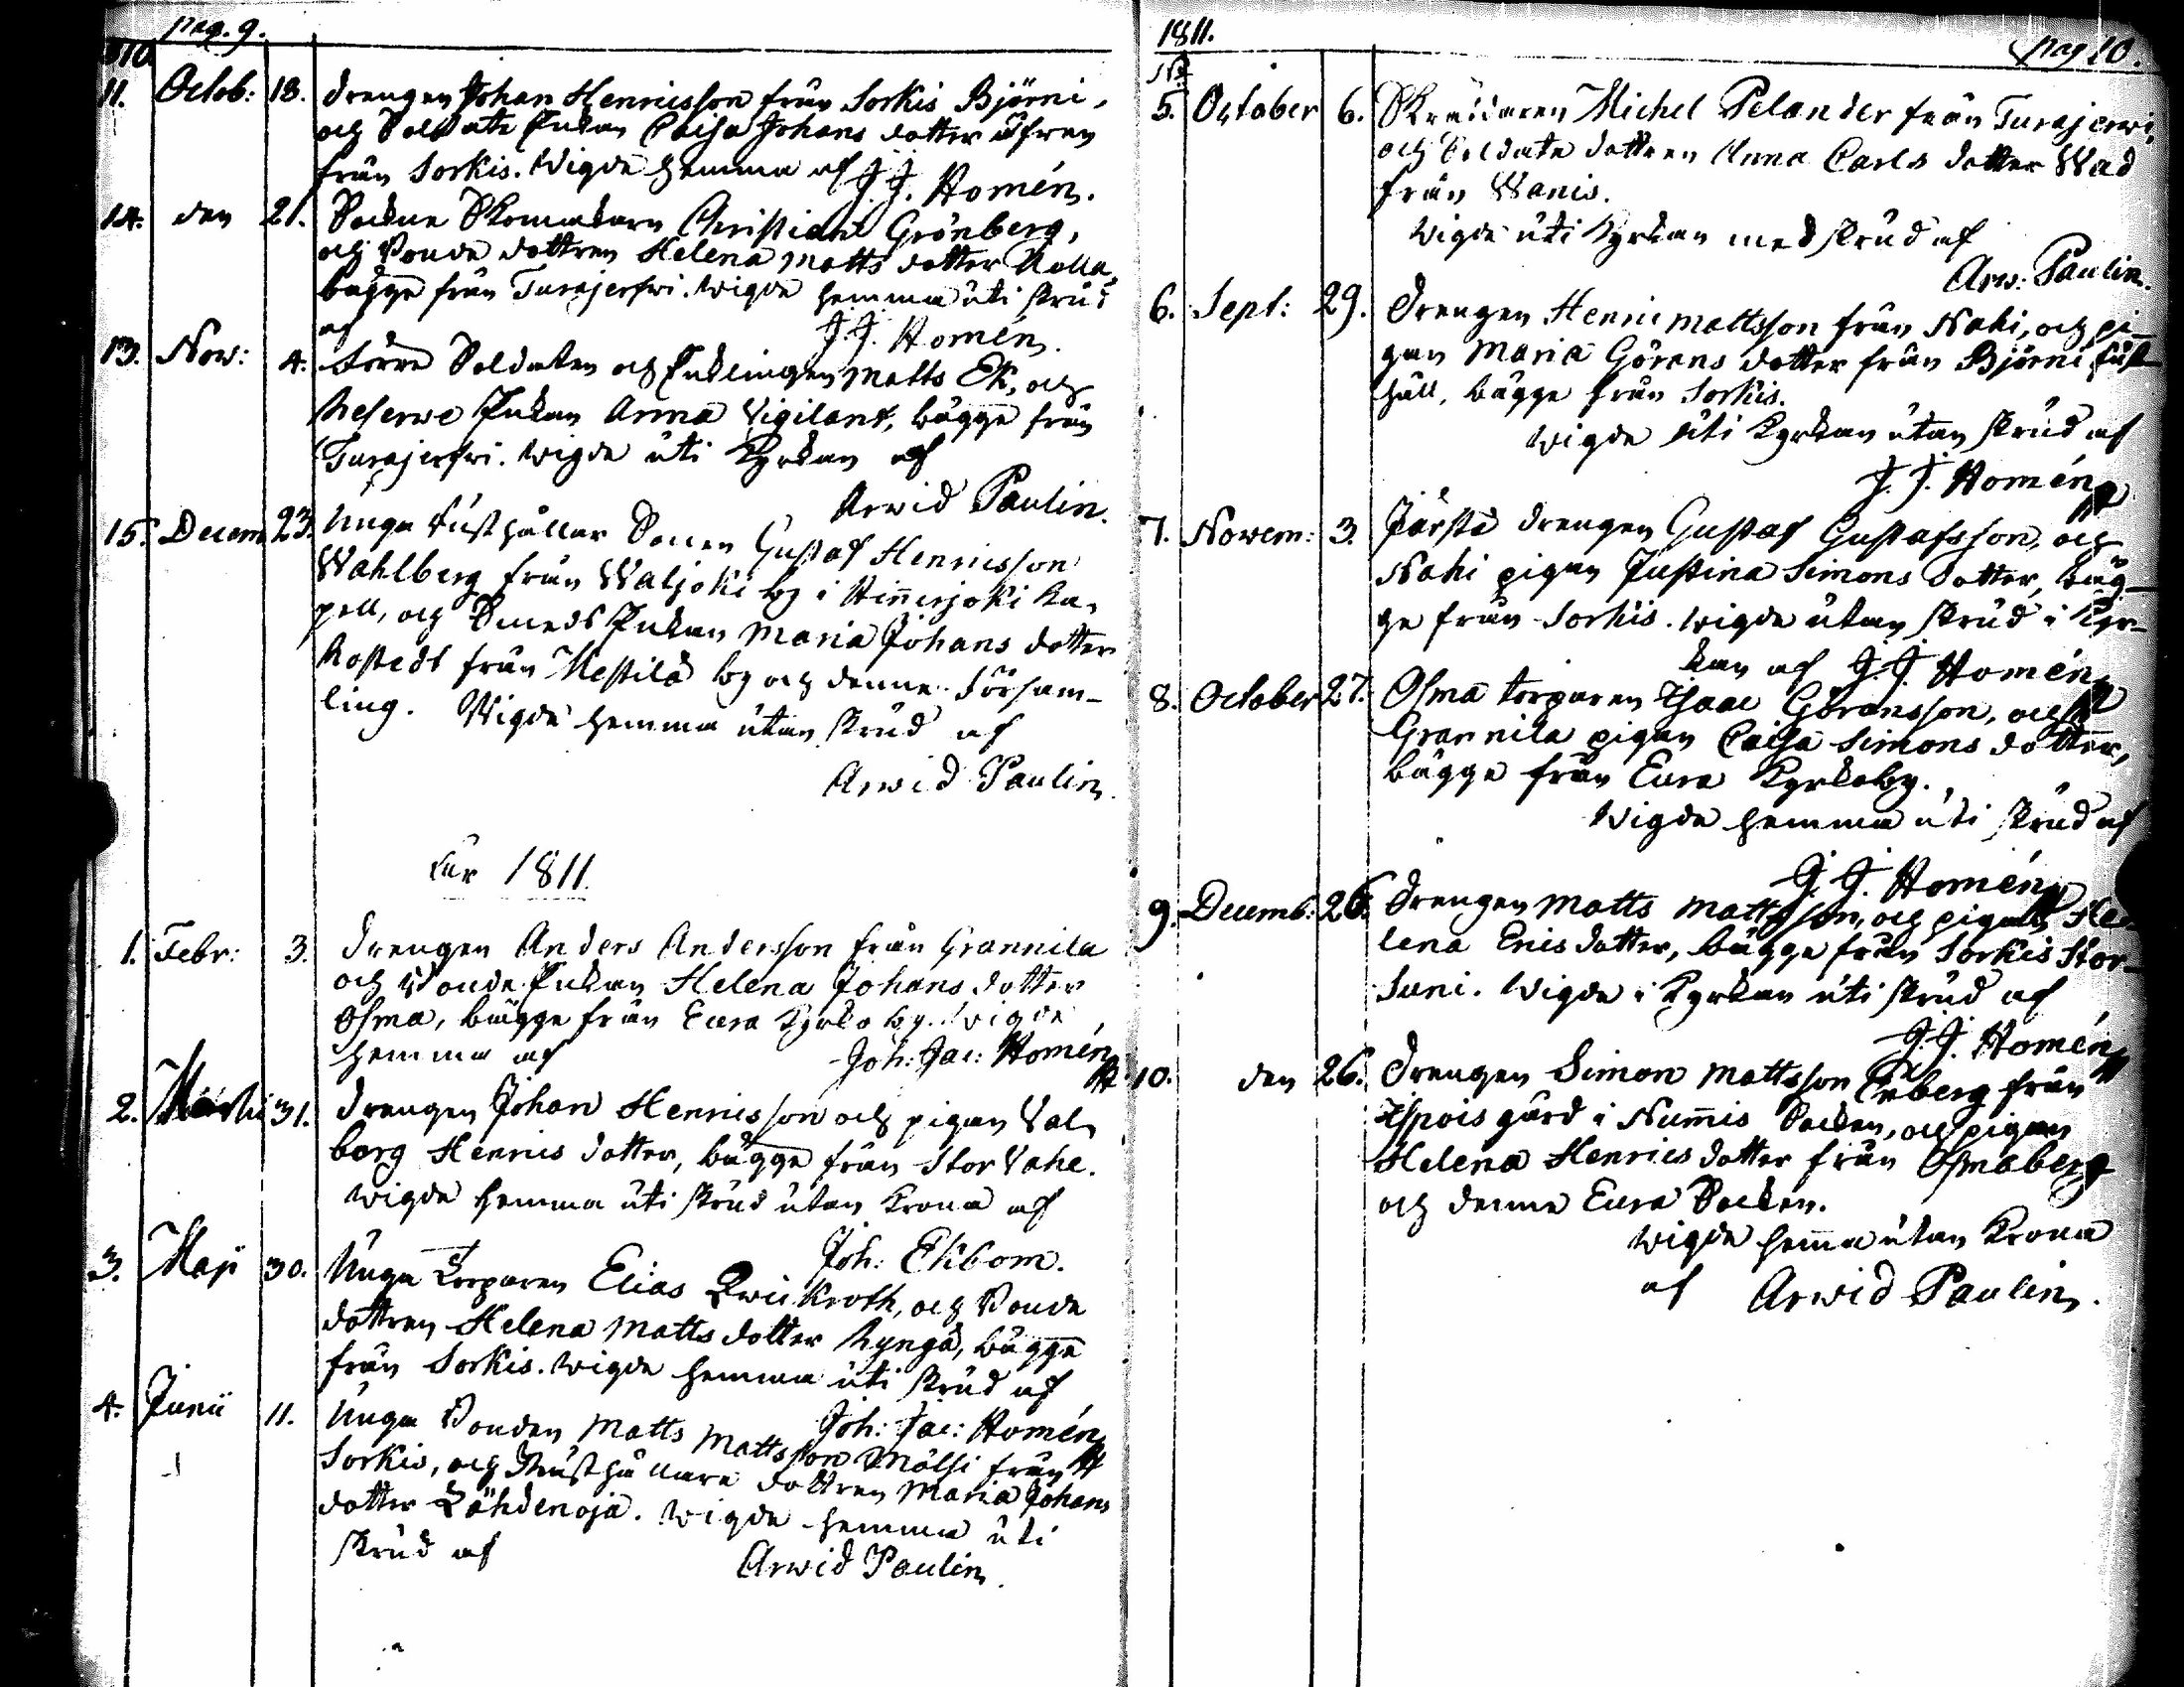 pag. 9.
1810.
11. Octob: 18. Drengen Johan Henricsson från Sorkis Björni,
och Soldate Enkan Caisa Johans dotter Öfren
från Sorkis. Wigde hemma af J. J. Homén.
14. den 21. Sockne Skomakaren Christian Grönberg,
och Bonde dottren Helena Matts dotter
bägge från Turajerfwi. Wigde hemma uti skrud
af J. J. Homén.
13. Now: 4. Förre Soldaten och Enklingen Matts Ek, och
Reserwe Enkan Anna Vigilant, bägge från
Turajerfwi. Wigde uti Kyrkan af
Arwid Paulin.
15. Decem 23. Unga Rusthållar Sonen Gustaf Henricsson
Wahlberg från Waljoki by i Hinnerjoki Ka-
pell, och Smeds Enkan Maria Johans dotter
Rostedt från Mestilä by och denne Försam-
ling. Wigde hemma utan skrud af
Arwid Paulin.
År 1811.
1. Febr: 3. Drengen Anders Andersson från Grannila
och Bonde Enkan Helena Johans dotter
Osma, bägge från Eura Kyrko by. Wigde
hemma af Joh: Jac: Homén
2. Martii 31. Drengen Johan Henricsson och pigan Val-
borg Henrics dotter, bägge från Stor Vahe.
Wigde hemma uti skrud utan Krona af
Joh: Ekbom.
3. Maji 30. Unga Torparen Elias Qwickroth, och Bonde
dottren Helena Matts dotter Rynga, bägge
från Sorkis. Wigde hemma uti skrud af
Joh: Jac: Homén
4. Junii 11. Unga Bonden Matts Mattsson Mälsi från
Sorkis, och Rusthållare dottren Maria Johans
dotter Lähdenoja. Wigde hemma uti
skrud af Arwid Paulin.
1811. pag 10.
No
5. October 6. Skräddaren Michel Pelander från Turajerwi,
och Soldate dottren Anna Carls dotter Wad
från Wanis.
Wigde uti Kyrkan med skrud af
Arw: Paulin.
6. Sept: 29. Drengen Henric Mattsson från Nohi, och pi-
gan Maria Görans dotter från Björni Rust-
håll, bägge från Sorkis.
Wigde uti Kyrkan utan skrud af
J. J. Homén
7. Novem: 3. Pärsti drengen Gustaf Gustafsson, och
Nohi pigan Justina Simons dotter, bäg-
ge från Sorkis. Wigde utan skrud i Kyr-
kan af J. J. Homén
8. October 27. Osma torparen Isaac Göransson, och
Grannila pigan Caisa Simons dotter,
bägge från Eura Kyrkoby.
Wigde hemma uti skrud af
J. J. Homén
9. Decemb: 26. Drengen Matts Mattsson, och pigan He-
lena Erics dotter, bägge från Sorkis Stor-
Juni. Wigde i Kyrkan uti skrud af
J. J. Homén
10. den 26. Drengen Simon Mattsson Enberg från
Ispois gård i Num̄is Socken, och pigan
Helena Henrics dotter från Osmaberg
och denne Eura Socken.
Wigde hem̄a utan Krona
af Arwid Paulin.